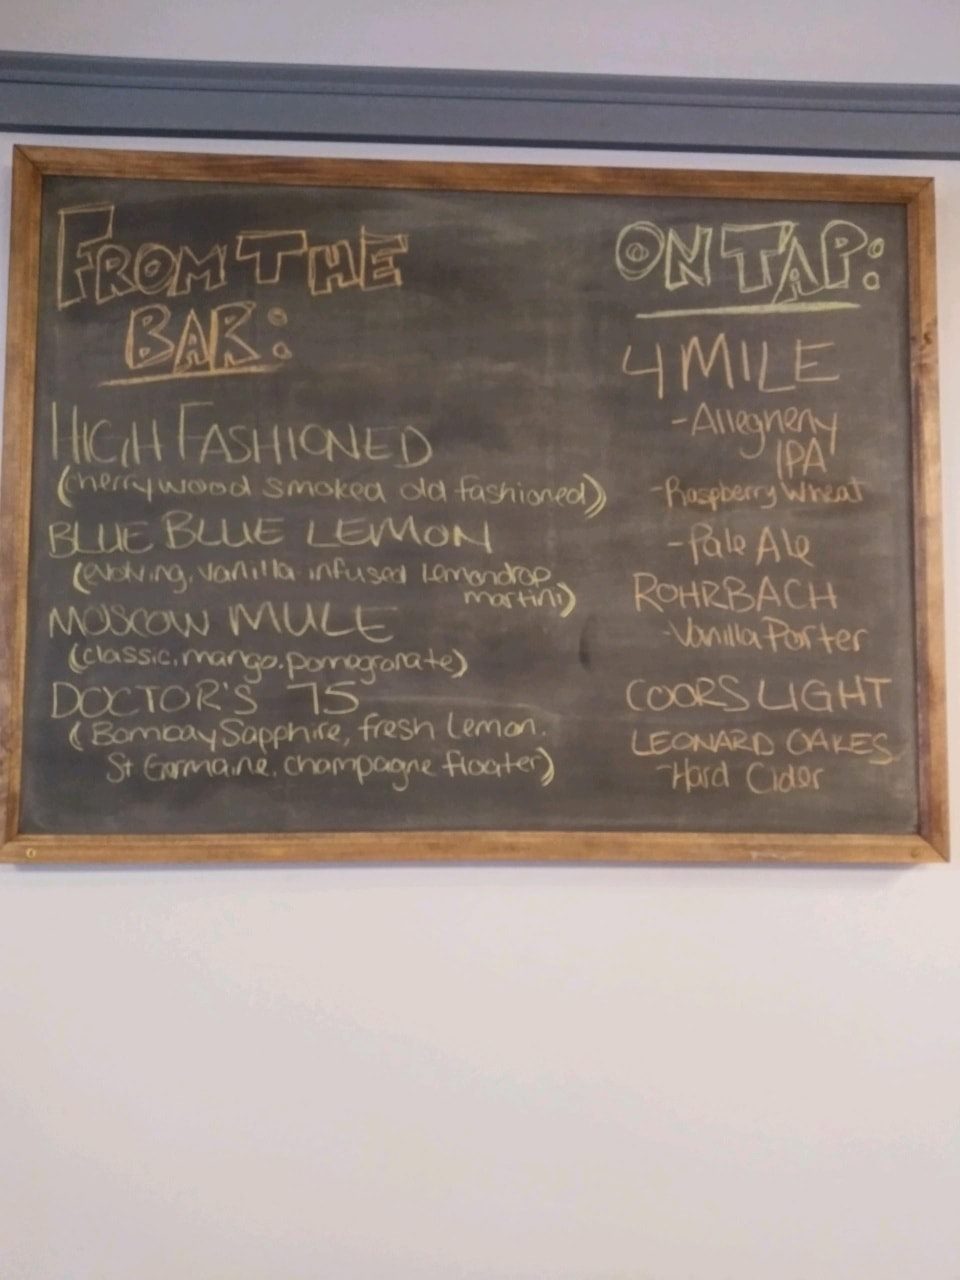 FROM THE
BAR:
HIGH FASHIONED
(cherrywood smoked old fashioned)
BLUE BLUE LEMON
(evolving, vanilla infused lemondrop
martini)
MOSCOW MULE
(classic, mango, pomagranate)
DOCTOR'S 75
(Bombay Sapphire, fresh lemon,
St Germaine, champagne floater)
ON TAP:
4 MILE
-Allegheny
IPA
-Raspberry Wheat
-Pale Ale
ROHRBACH
-Vanilla Porter
COORS LIGHT
LEONARD OAKES
-Hard Cider